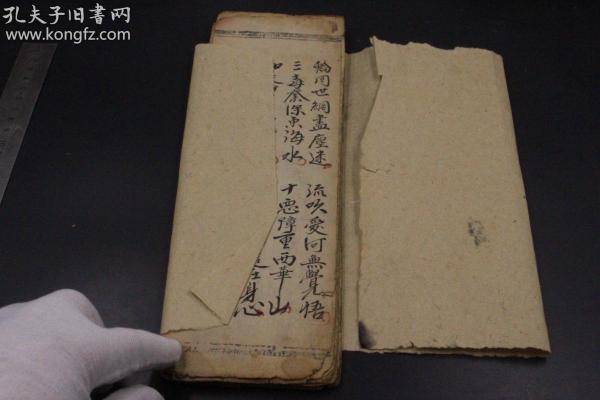 孔夫子旧书网
www.kongfz.com
輪回世網盡塵迷 流吹愛河無覺悟
三毒奈深東海水 十惡障重西華山
身心